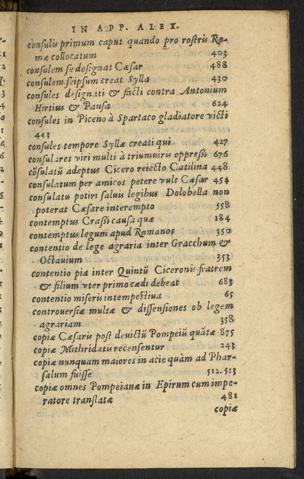 IN APP. ALEX.
consulis primum caput quando pro rostris Ro-
mæ collocatum 403
consulem se designat Cæsar 488
consulem seipsum creat Sylla 430
consules designati & facti contra Antonium
Hirtius & Pansa 624
consules in Piceno à Spartaco gladiatore victi
423
consules tempore Syllæ creati qui 427
consulares viri multi à triumuiru oppresi 676
cõsulatū adeptus Cicero reiecto Catilina 448
consulatum per amicos petere vult Cæsar 453
consulatu potiri saluis legibus Dolobella non
poterat Cæsare interempto 558
contemptus Crassi causa quæ 184
contemptus legum apud Romanos 350
contentio de lege agraria inter Gracchum &
Octauium 353
contentio pia inter Quintū Ciceronis fratrem
& filium vter primo cædi debeat 683
contentio miseris intempestiua 65
controuersiæ multæ & dissensiones ob legem
agrariam 358
copiæ Cæsaris post deuictū Pompeiū quãtæ 875
copiæ Mithridatis recensentur 243
copiæ nunquam maiores in acie quàm ad Phar-
salum fuisse 512.513
copiæ omnes Pompeianæ in Epirum cum impe-
ratore translatæ 481
copiæ